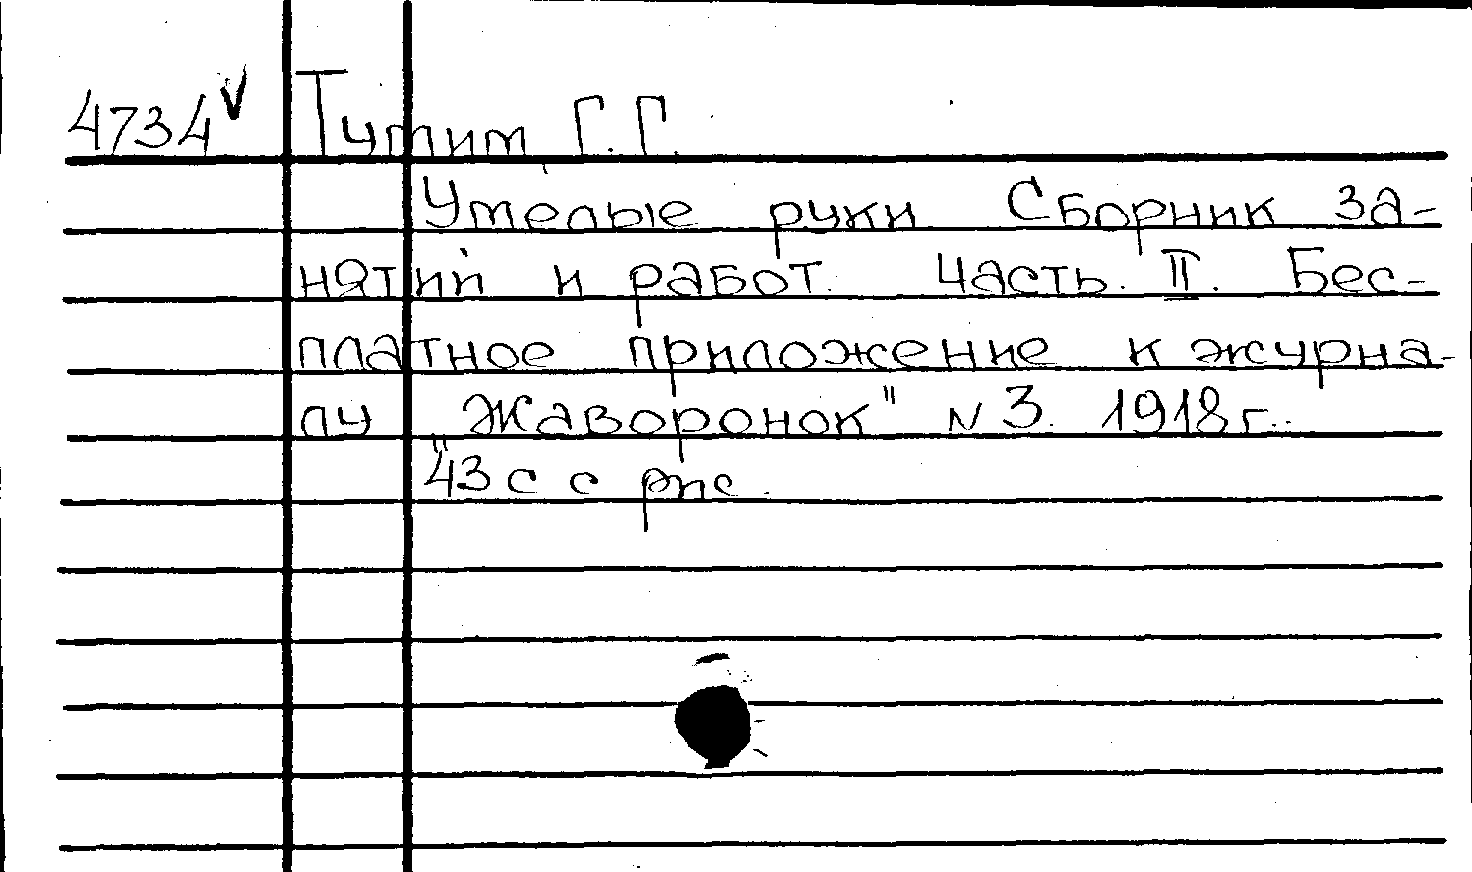 4734 V Тумим Г. Г.
Умелые руки Сборник за-
нятий и работ. Часть. II. Бес-
платное приложение к журна-
лу „Жаворонок" N 3. 1918 г..
43 с с рис.